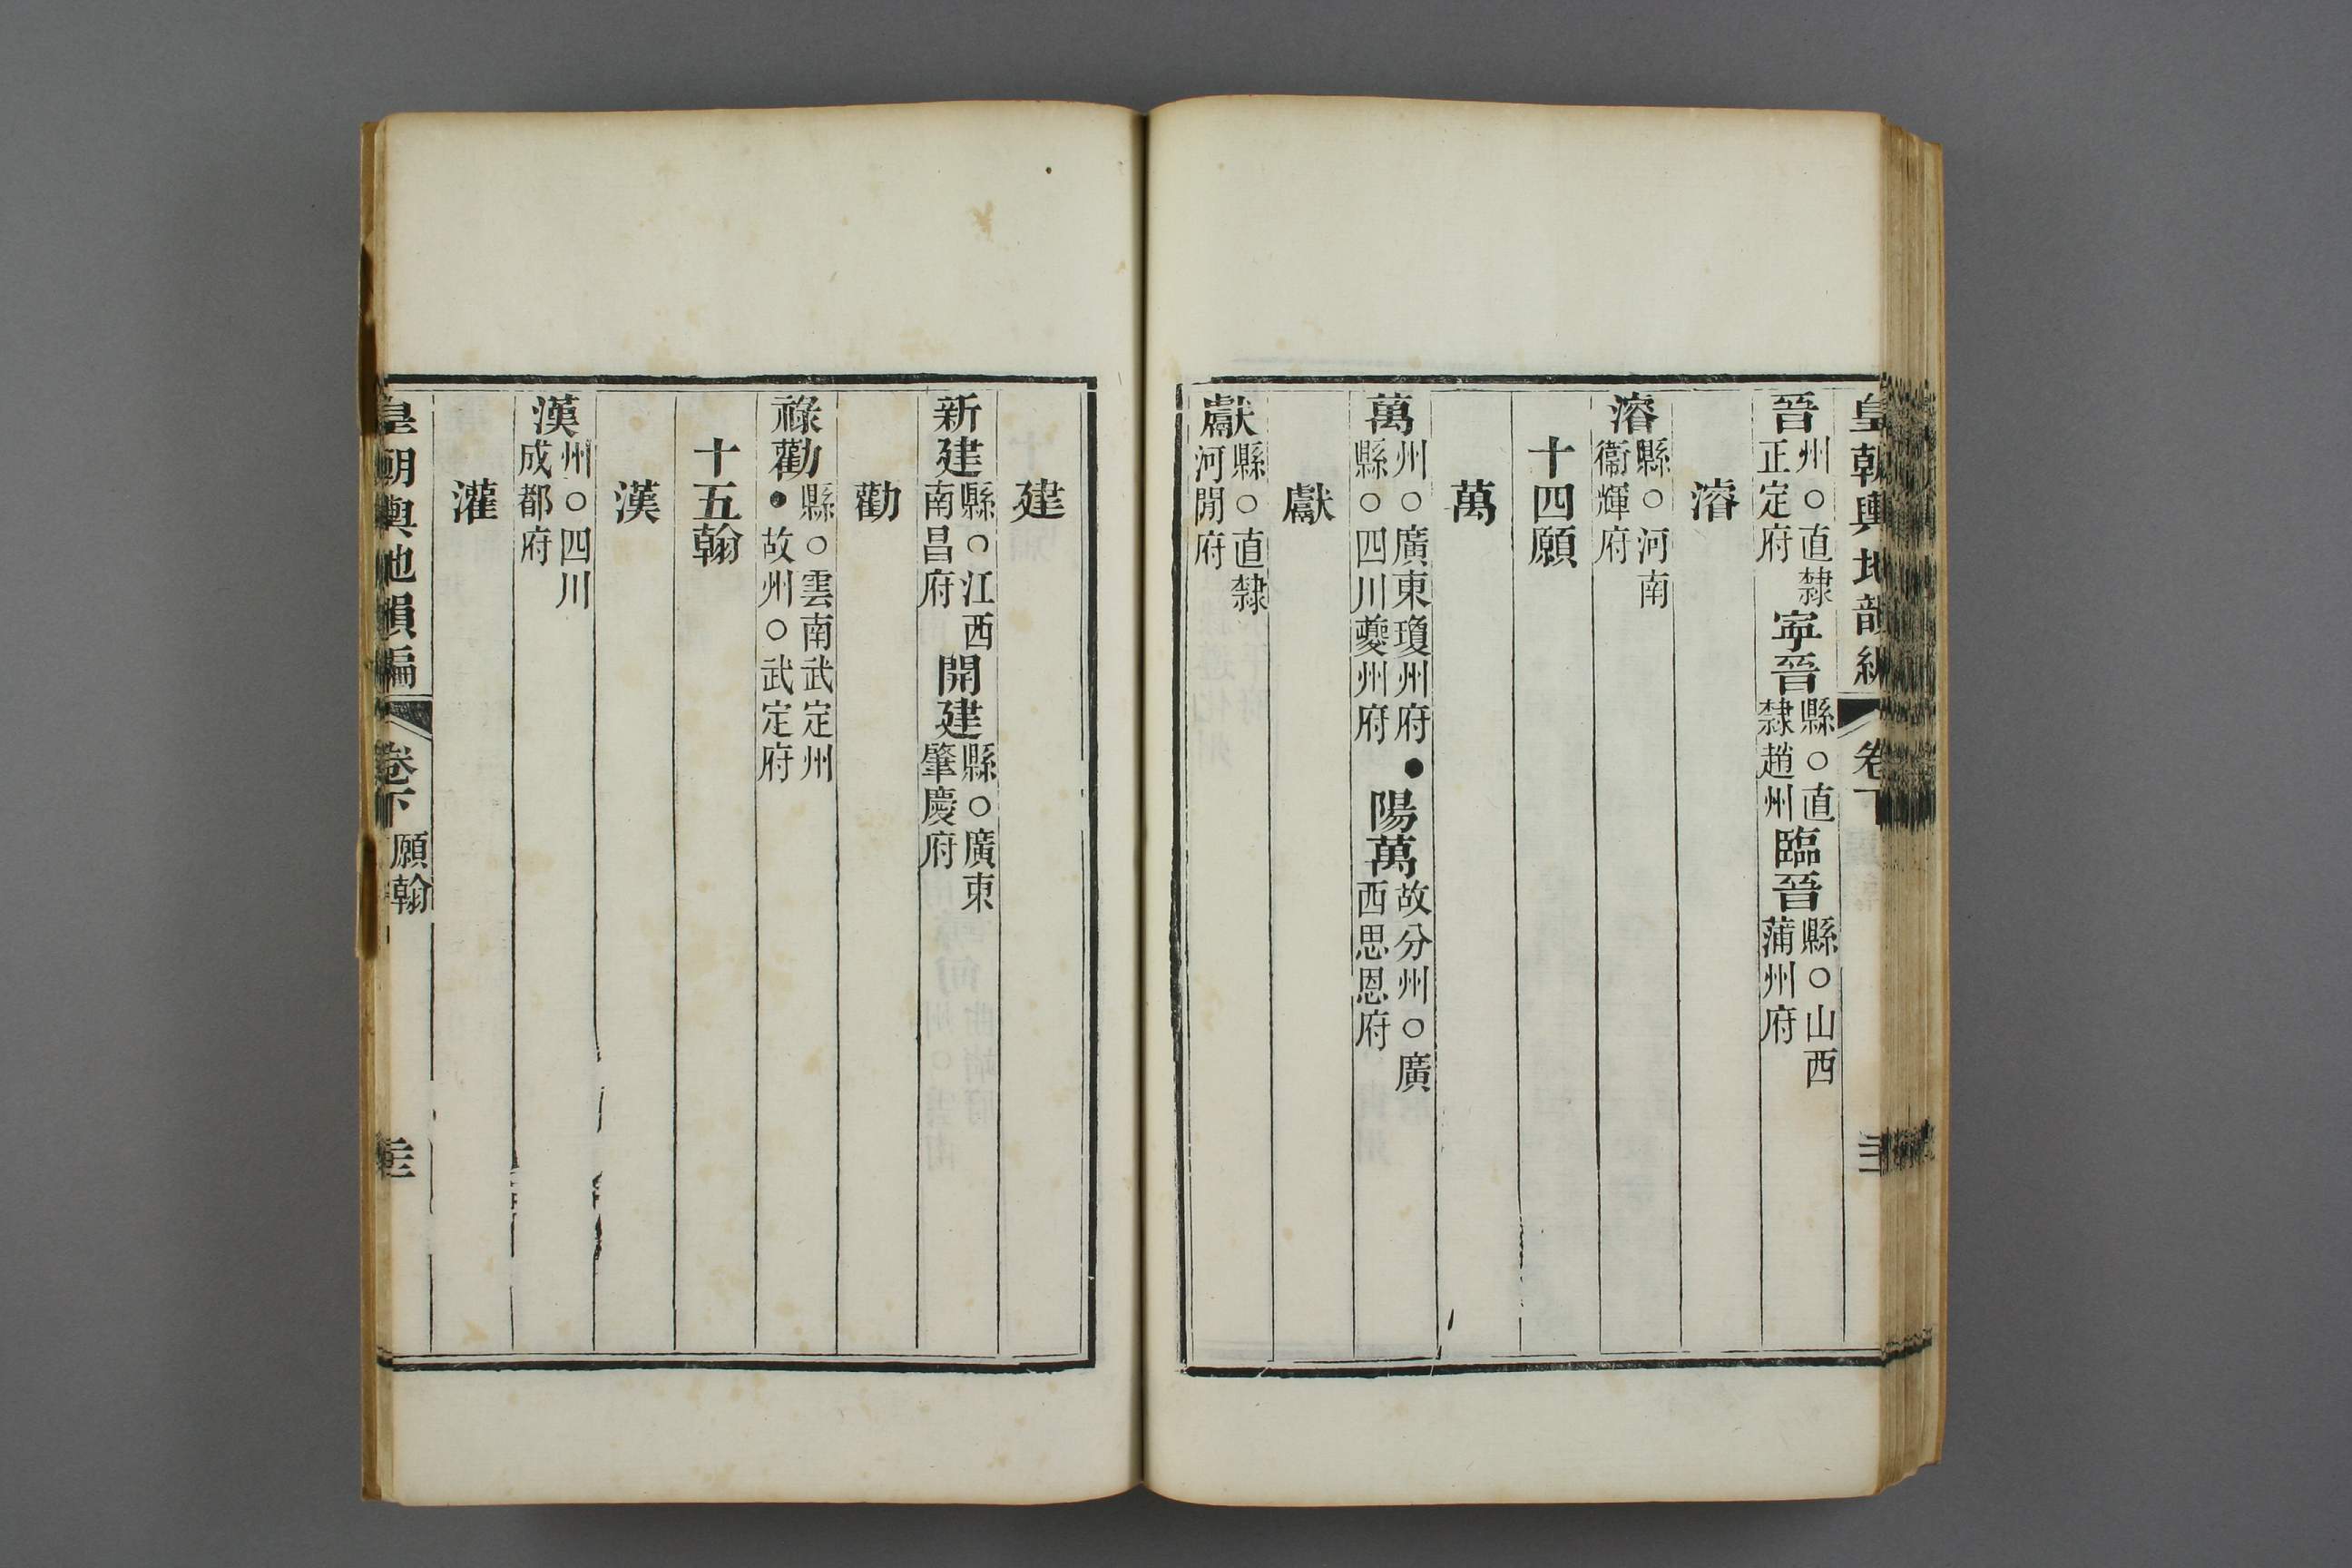 皇朝輿地韻編 卷下
晉州○直隸正定府 寧晉縣○直隸趙州 臨晉縣○山西蒲州府
濬
濬縣○河南衞輝府
十四願
萬
萬州○廣東瓊州府●縣○四川夔州府 陽萬故分州○廣西思恩府
獻
獻縣○直隸河閒府
建
新建縣○江西南昌府 開建縣○廣東肇慶府
勸
祿勸縣○雲南武定州●故州○武定府
十五翰
漢
漢州○四川成都府
灌
皇朝輿地韻編 卷下 願翰